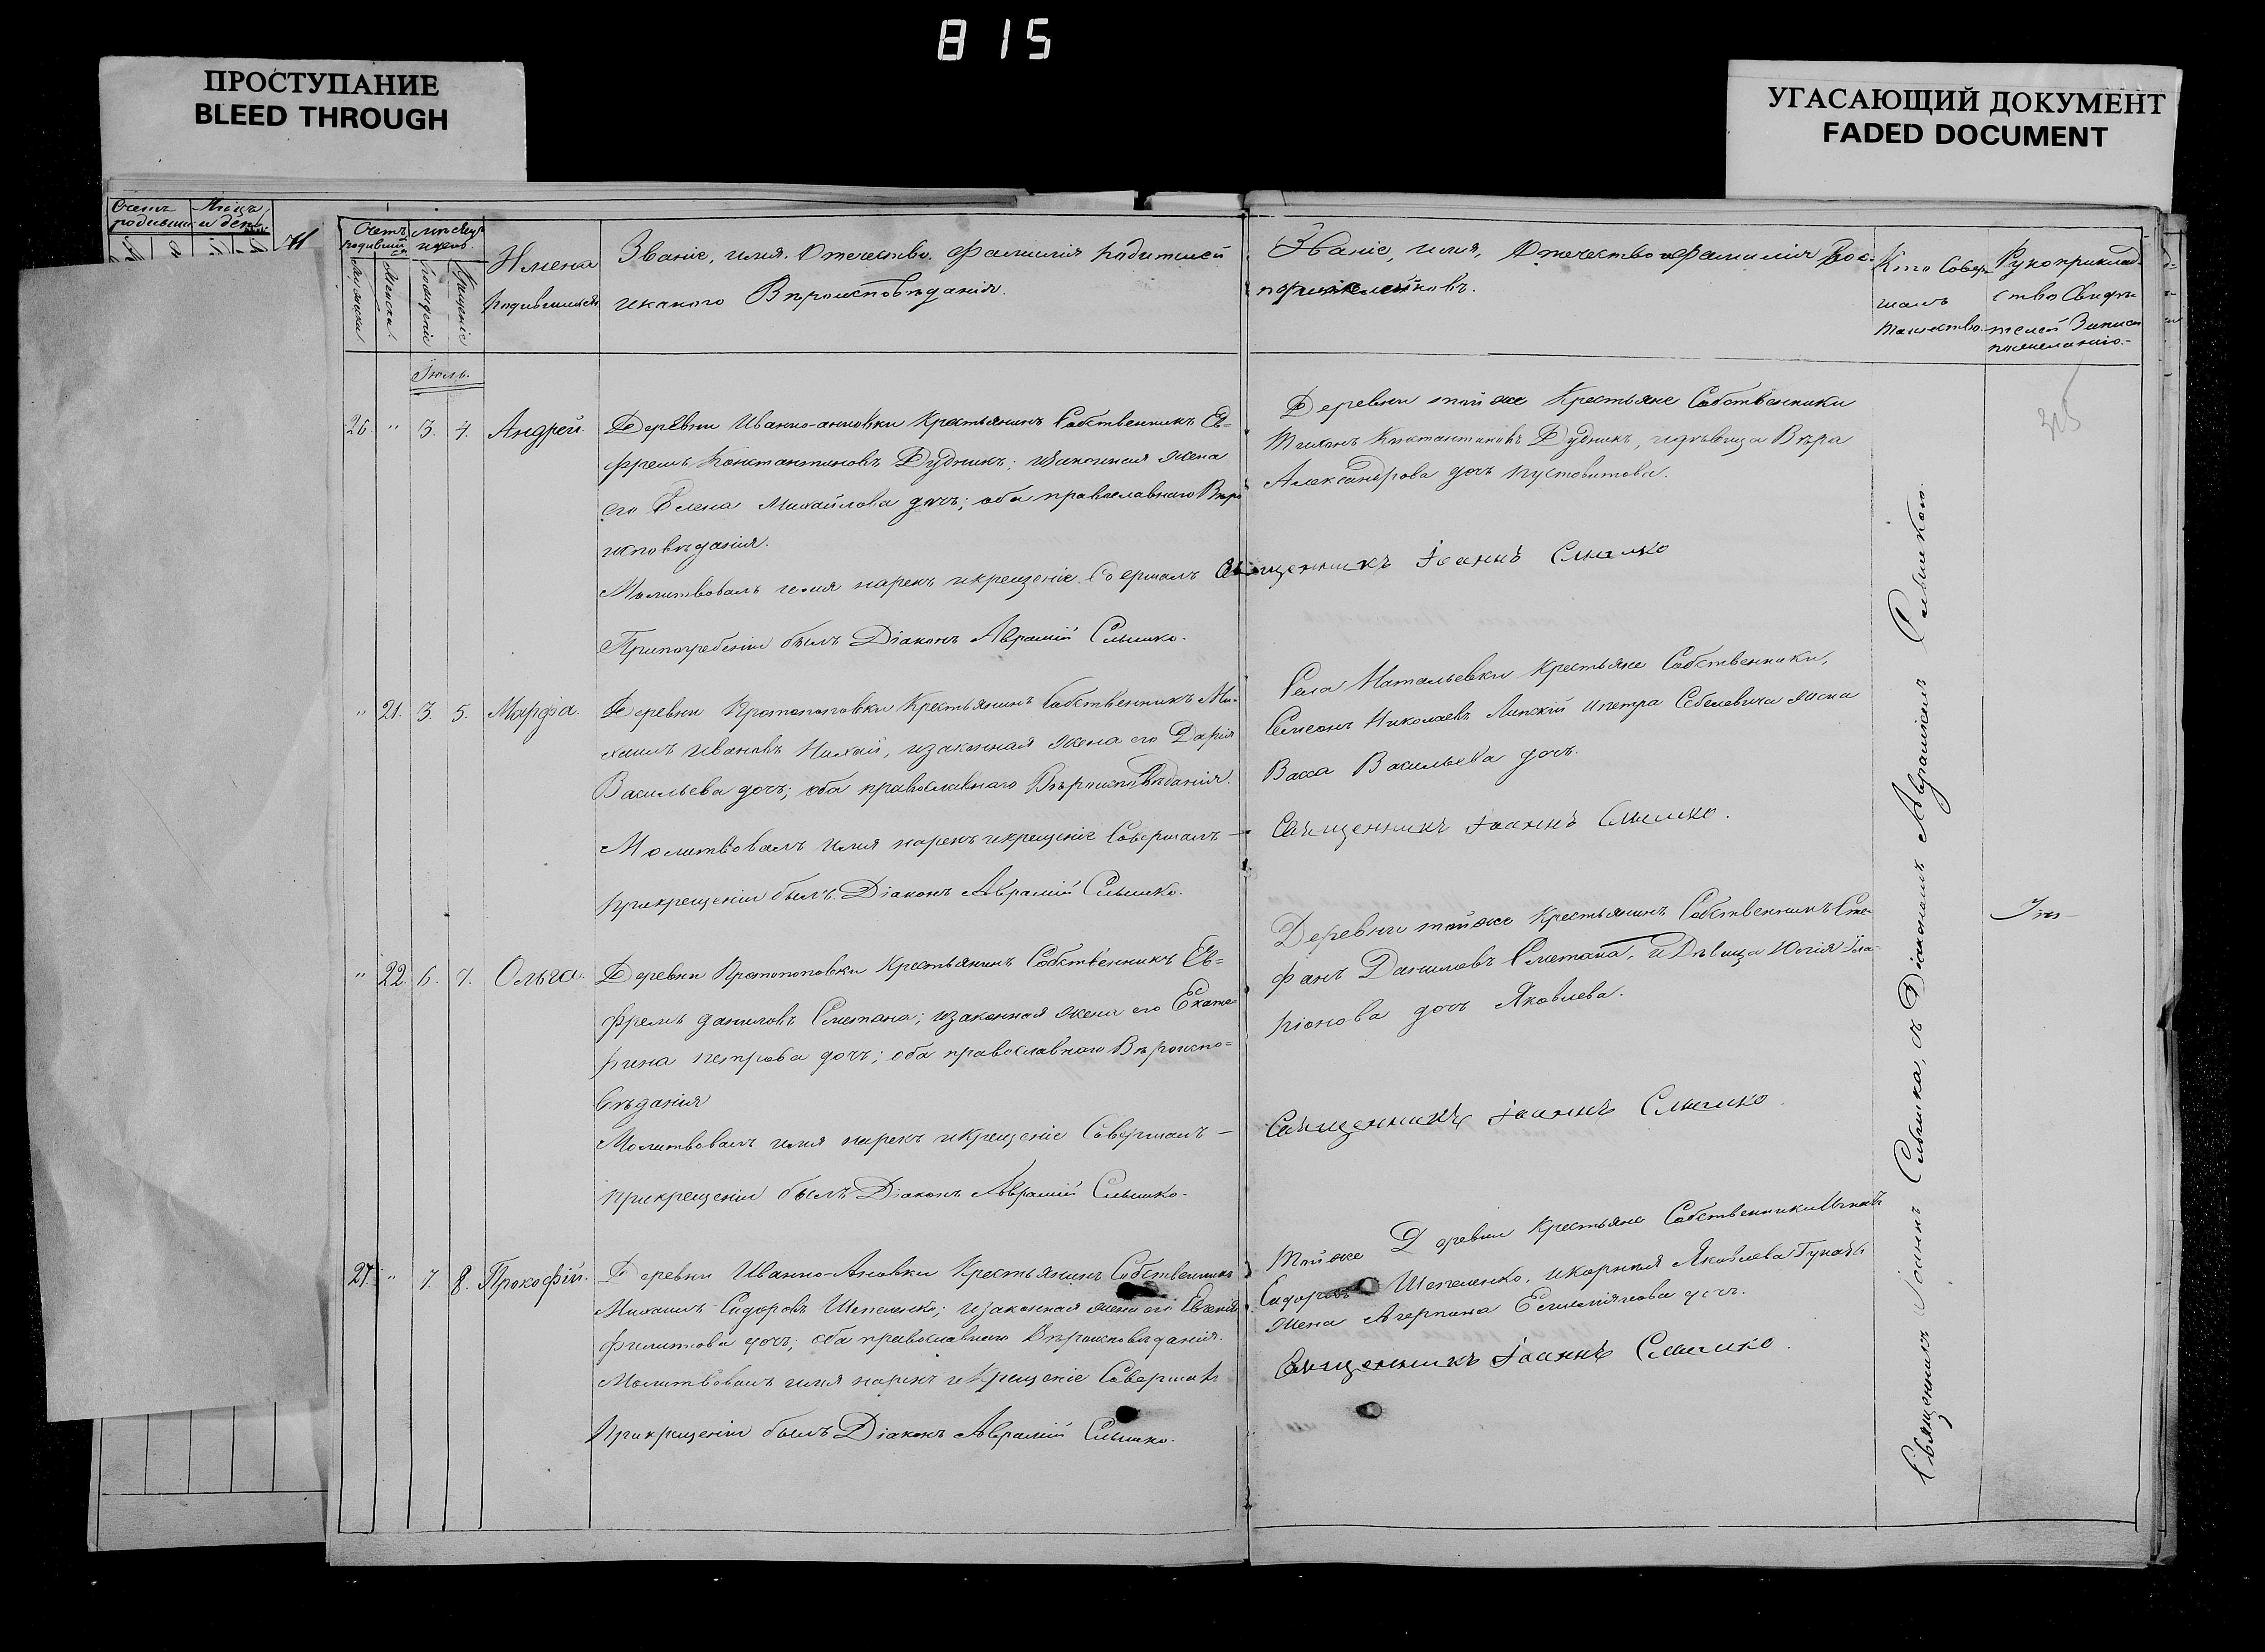 815
ПРОСТУПАНИЕ
BLEED THROUGH
УГАСАЮЩИЙ ДОКУМЕНТ
FADED DOCUMENT
Счетъ
родивши
Мѣсяцъ
и день
Имена
родившихся
Званіе, имя, Отечество, Фамилія родителей
и какого Вѣроисповѣданія.
Званіе, имя, Отечество и Фамилія Вос-
пріемниковъ.
Кто Совер-
шалъ
таинство
Рукоприклад-
ство Свидѣ-
телей Записи
по желанію.
Іюль.
305
26. " 3. 4. Андрей.
Деревни Иванно-анновки Крестьянинъ Собственникъ Еѳ-
фремъ Константиновъ Дудникъ; изаконная жена
его Елена Михайлова дочь; оба православнаго Вѣро
исповѣданія.
Молитвовалъ имя нарекъ икрещеніе Совершалъ Священникъ Іоаннъ Слышко
Припогребеніи былъ Діаконъ Аврамій Слышко.
Деревни тойже Крестьяне Собственники
Тихонъ Константиновъ Дудникъ, идѣвица Вѣра
Александрова дочь пустовитова.
" 21. 3. 5. Марфа.
Деревни Протопоповки Крестьянинъ Собственникъ Ми-
хаилъ Ивановъ Нихай, изаконная жена его Дарія
Васильева дочь; оба православнаго Вѣроисповѣданія.
Молитвовалъ имя нарекъ икрещеніе Совершалъ —
прикрещеніи былъ Діаконъ Аврамій Слышко.
Села Натальевки Крестьяне Собственники,
Семеонъ Николаевъ Липскій ипетра Себелевича жена
Васса Васильева дочь.
Священникъ Іоаннъ Слышко.
" 22. 6. 7. Ольга.
Деревни Протопоповки Крестьянинъ Собственникъ Ев-
фремъ даниловъ Сметана; изаконная жена его Екате
рина петрова дочь; оба православнаго Вѣроиспо-
вѣданія
Молитвовалъ имя нарекъ икрещеніе Совершалъ —
прикрещеніи былъ Діаконъ Аврамій Слышко.
Деревни тойже Крестьянинъ Собственникъ Сте-
фанъ Даниловъ Сметана, и Дѣвица Юлія Іла-
ріонова дочь Яковлева.
Священникъ Іоаннъ Слышко.
27. " 7. 8. Прокофій.
Деревни Иванно-Ановки Крестьянинъ Собственникъ
Михаилъ Сидоровъ Шепеленко; изаконная жена его Евгенія
филипова дочь; оба православнаго Вѣроисповѣданія.
Молитвовалъ имя нарекъ икрещеніе Совершалъ
Прикрещеніи былъ Діаконъ Аврамій Слышко.
тойже Деревни Крестьяне Собственники Игнатъ
Сидоровъ Шепеленко, икорнія Яковлева Гукалъ
жена Агрепина Еѳимліянова дочь.
Священникъ Іоаннъ Слышко.
Священникъ Іоаннъ Слышка, съ Діакономъ Аврамiемъ Слышкою.